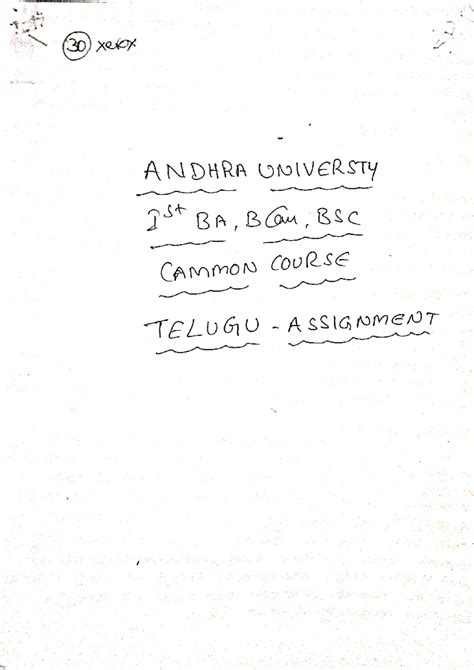 30 xerox
ANDHRA UNIVERSTY
Ist BA, BCom, BSC
CAMMON COURSE
TELUGU - ASSIGNMENT